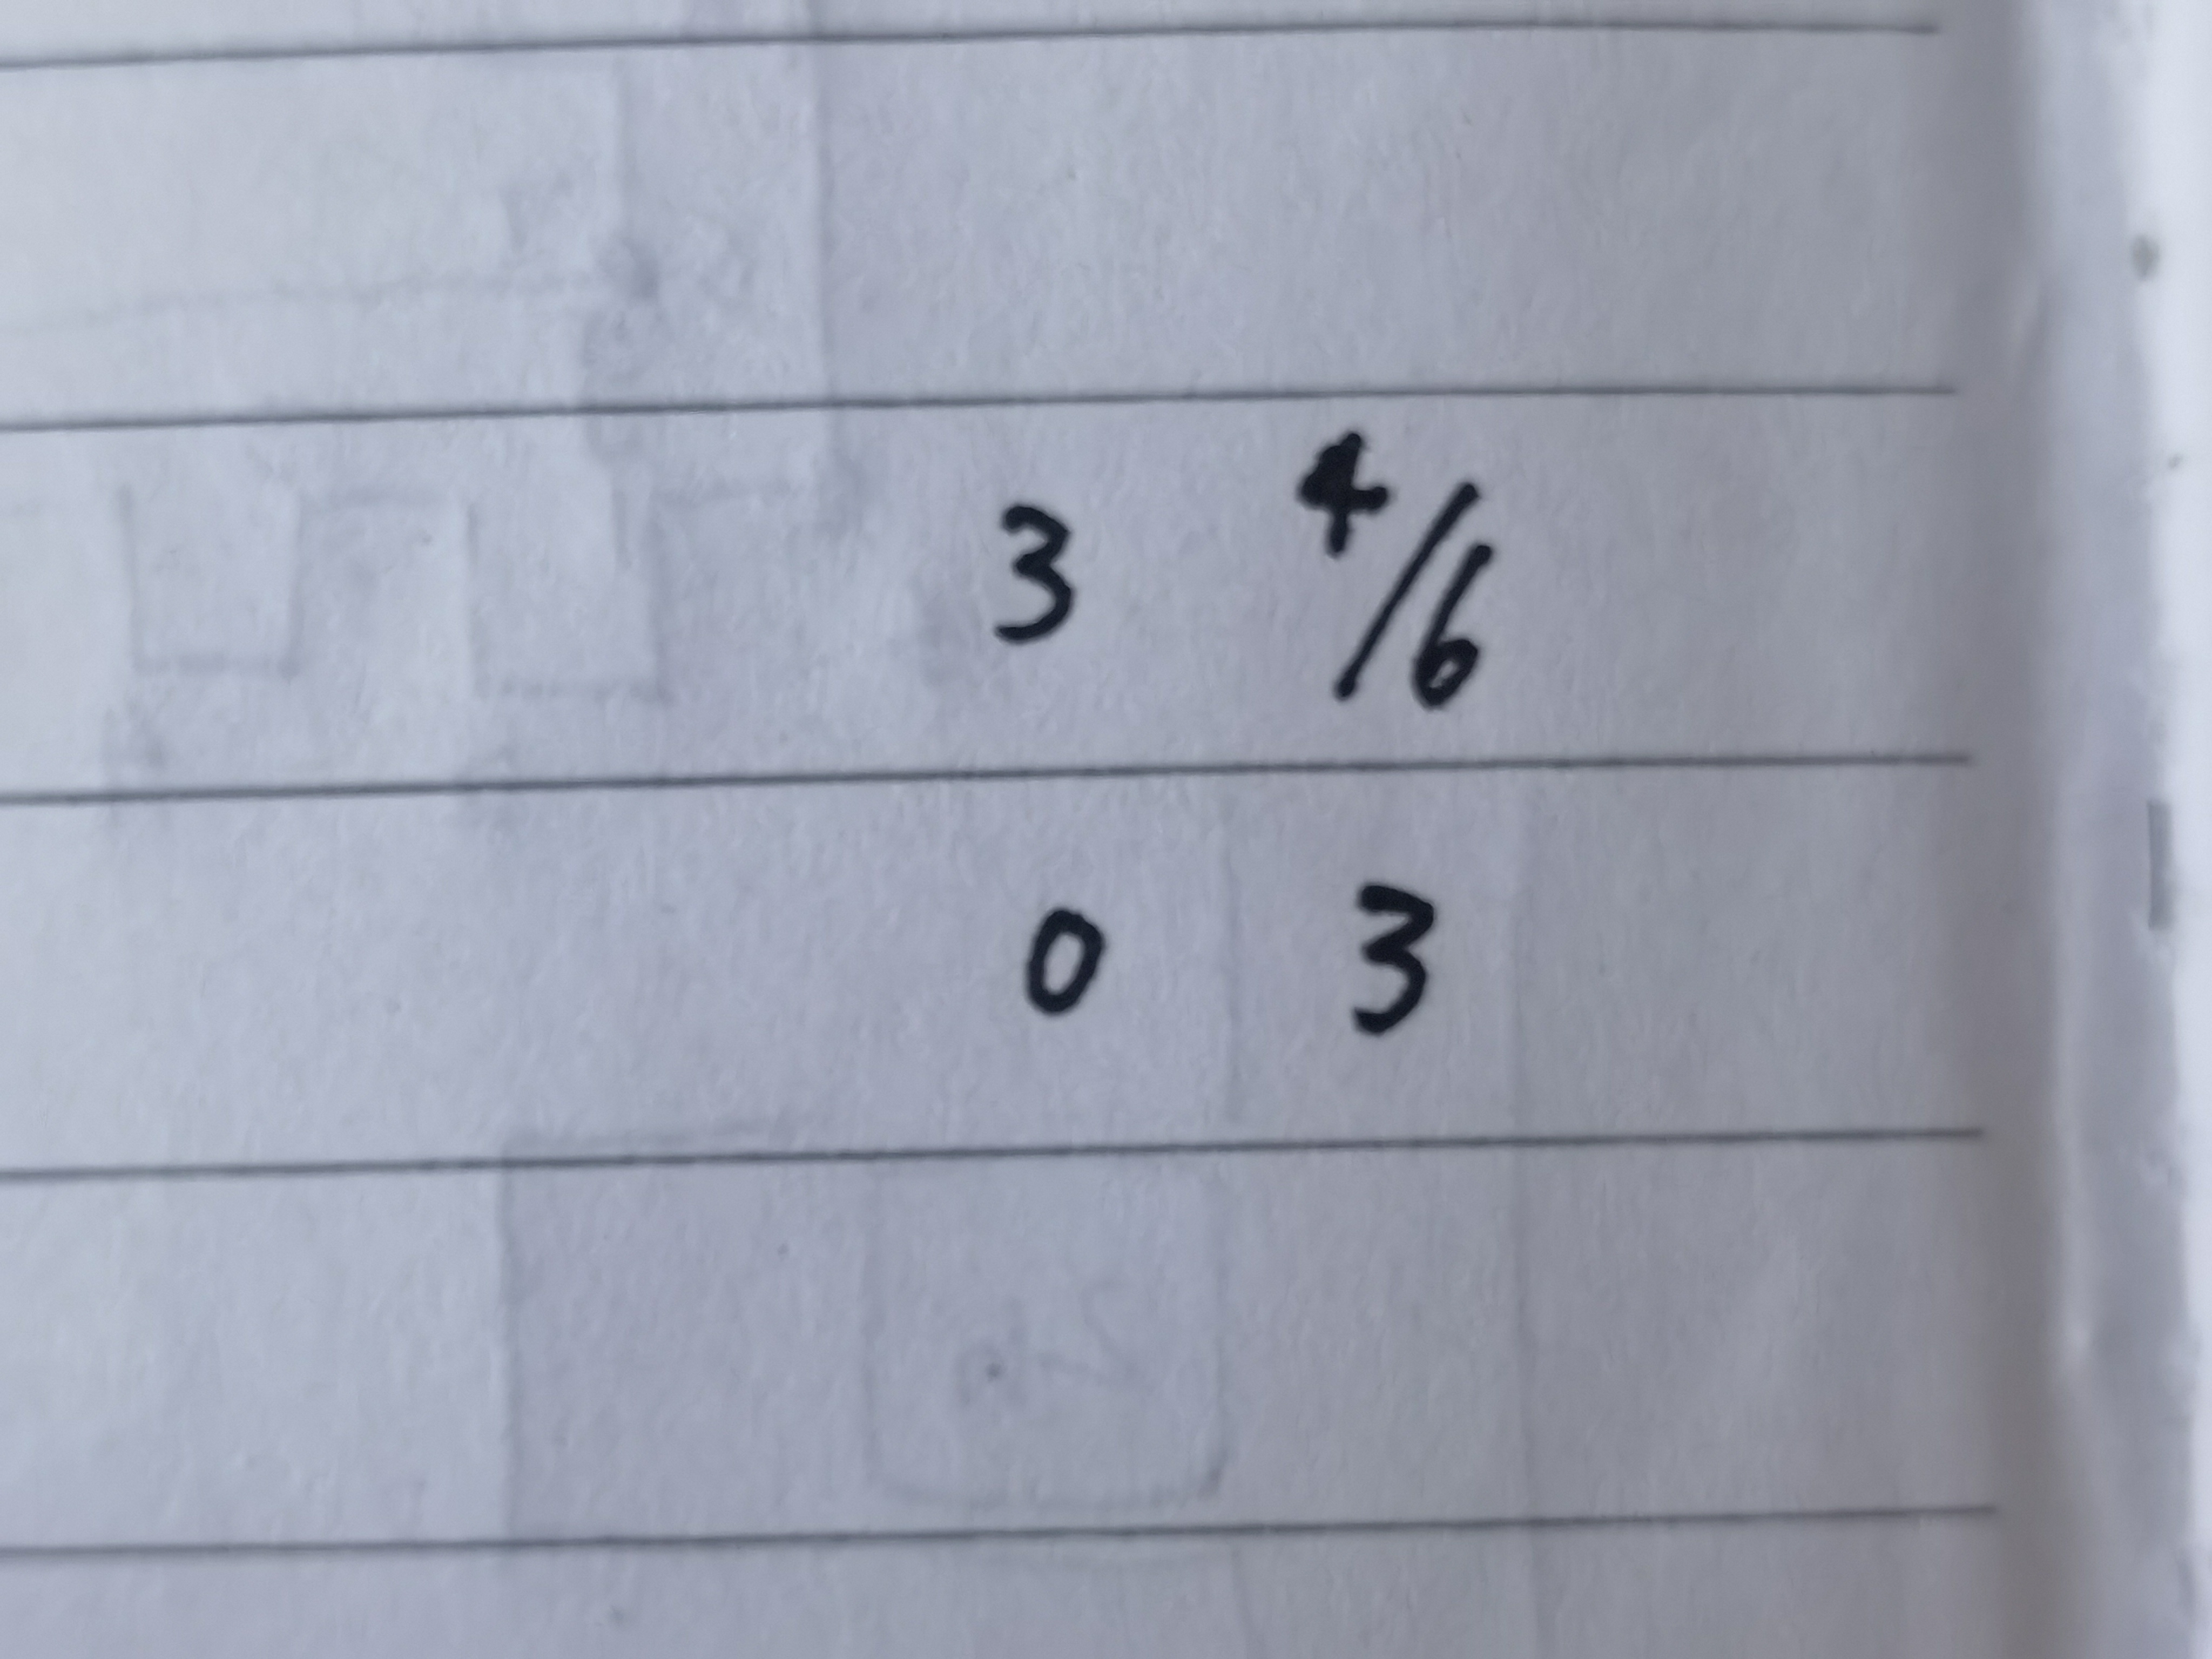 3 4/6
0 3